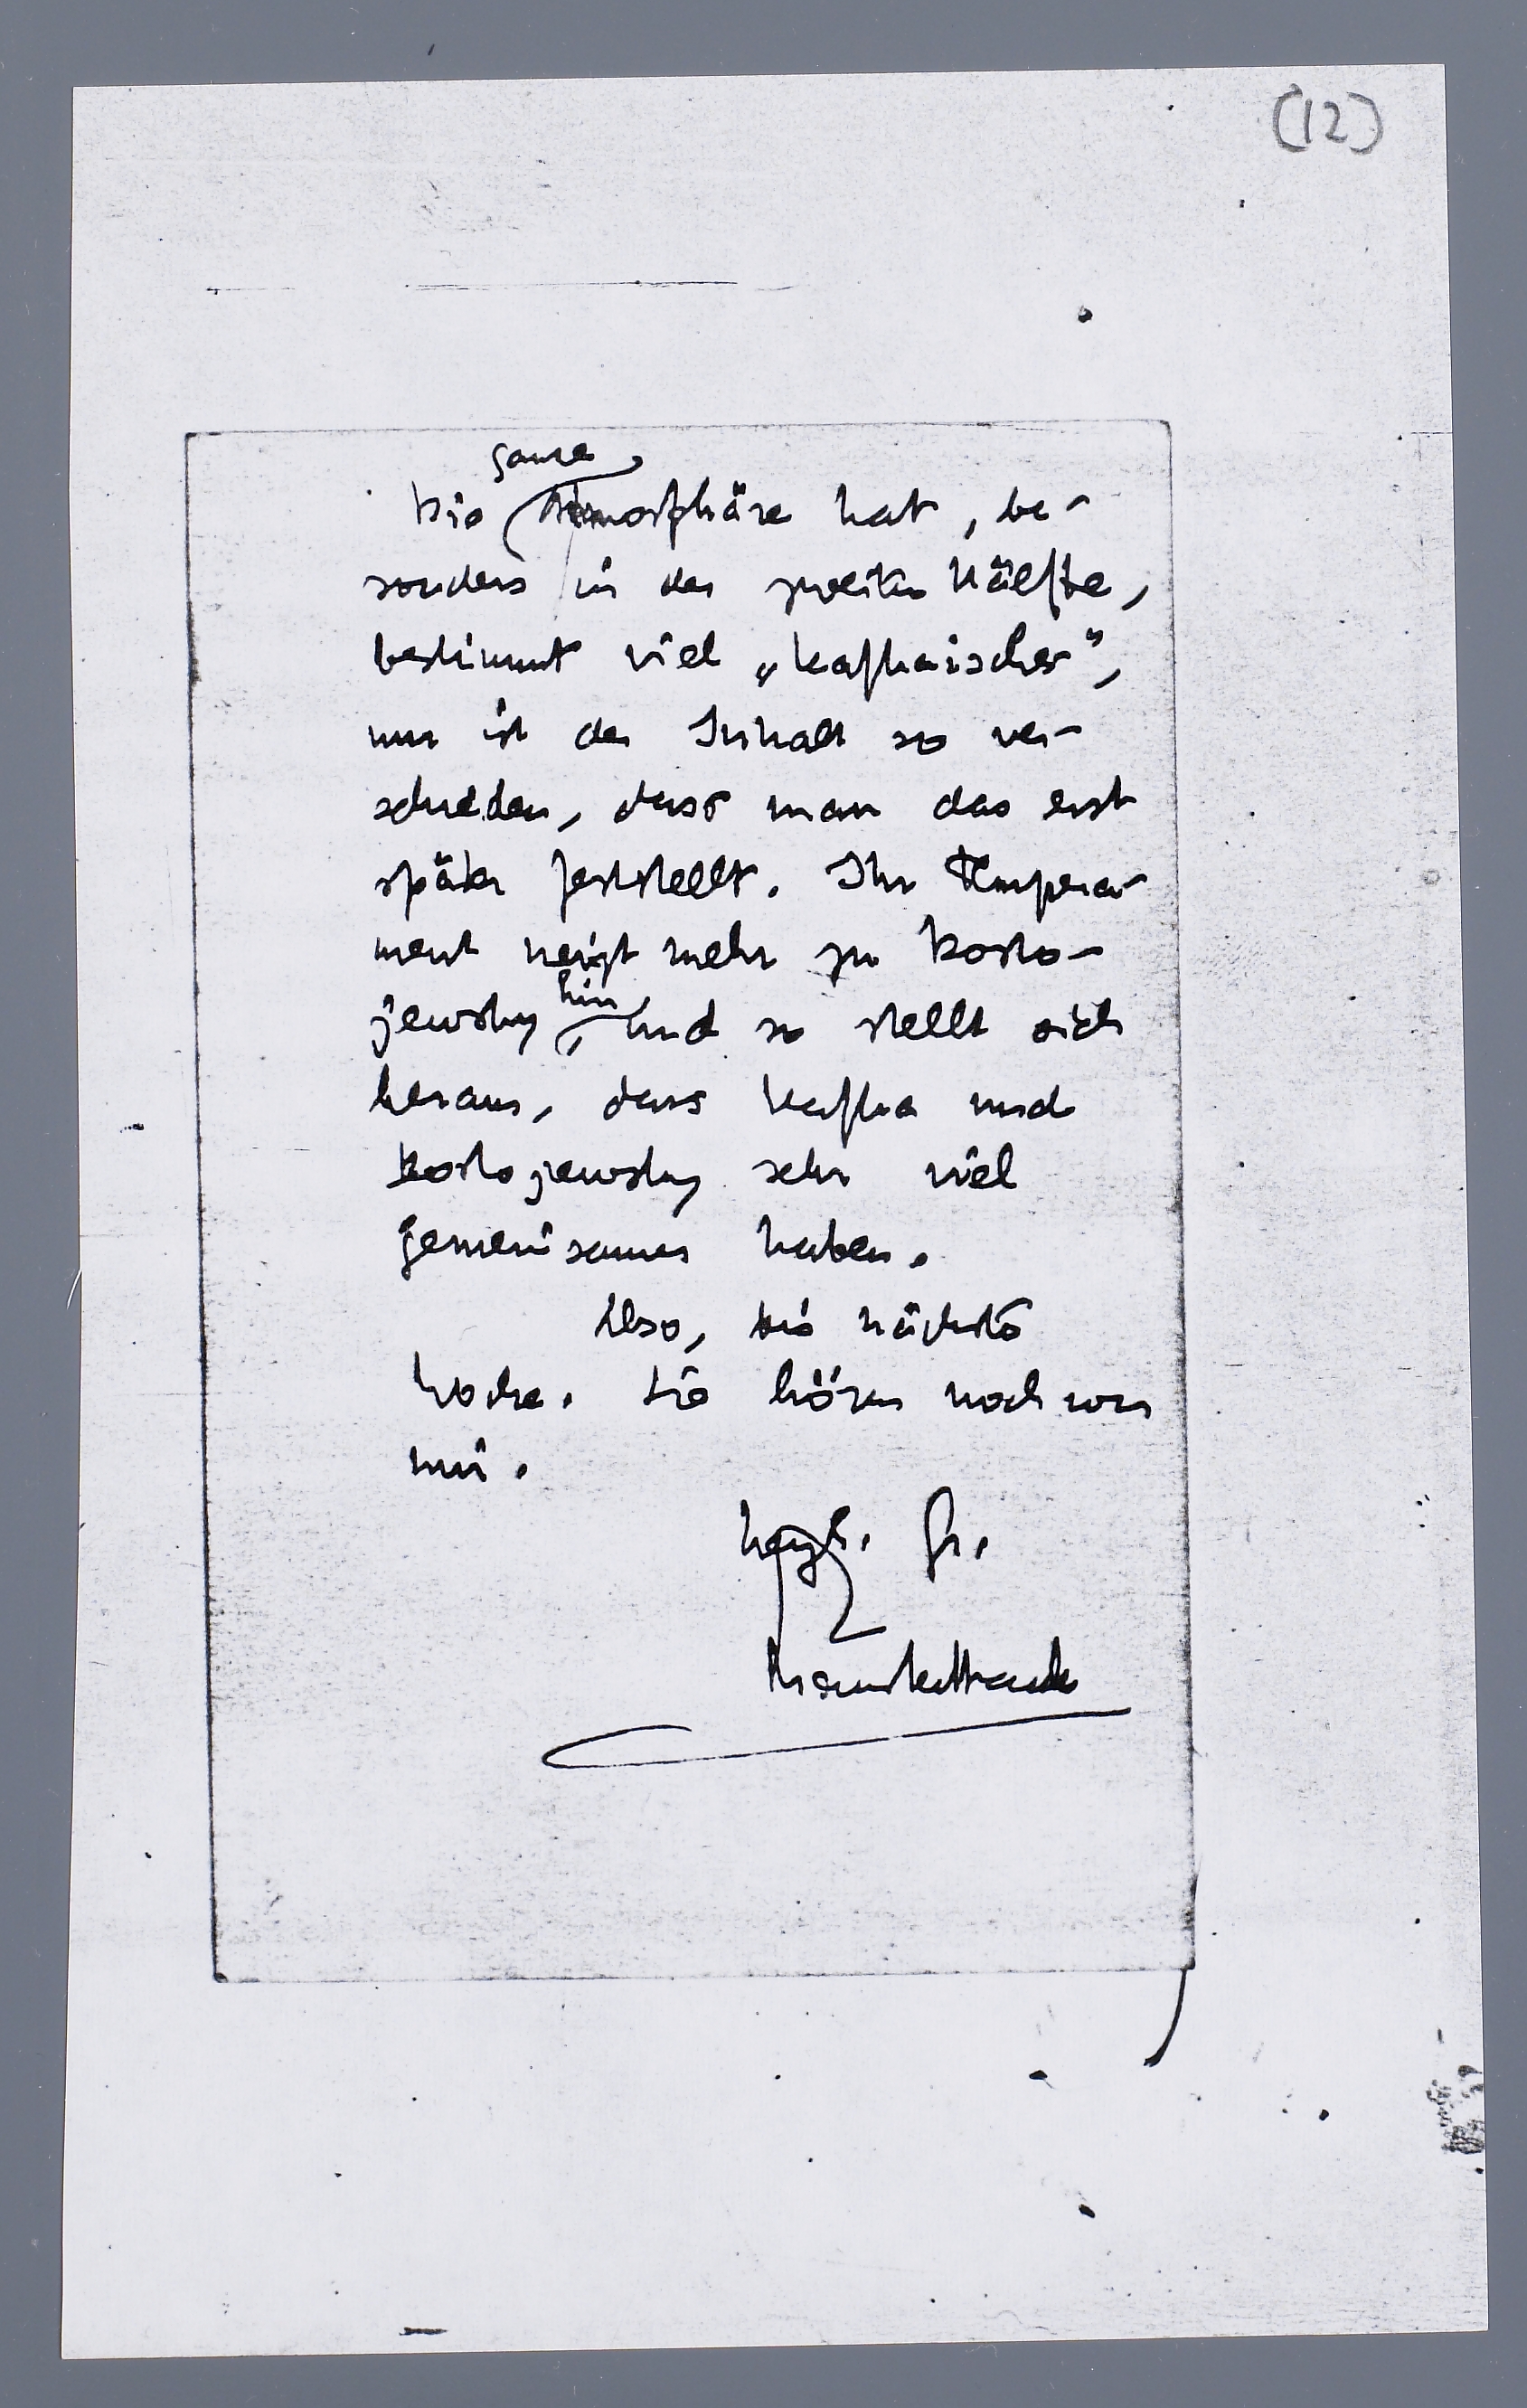 (12)
ganze
Die Atmosphäre hat, be-
sonders in der zweiten Hälfte,
bestimmt viel „kafkaisches",
nur ist der Inhalt so ver-
schieden, dass man das erst
später feststellt. Ihr Tempera-
ment neigt mehr zu Dosto-
jewsky hin, und so stellt sich
heraus, dass Kafka und
Dostojewsky sehr viel
gemeinsames haben.
Also, bis nächste
Woche. Sie hören noch von
mir.
Herzl. Gr.